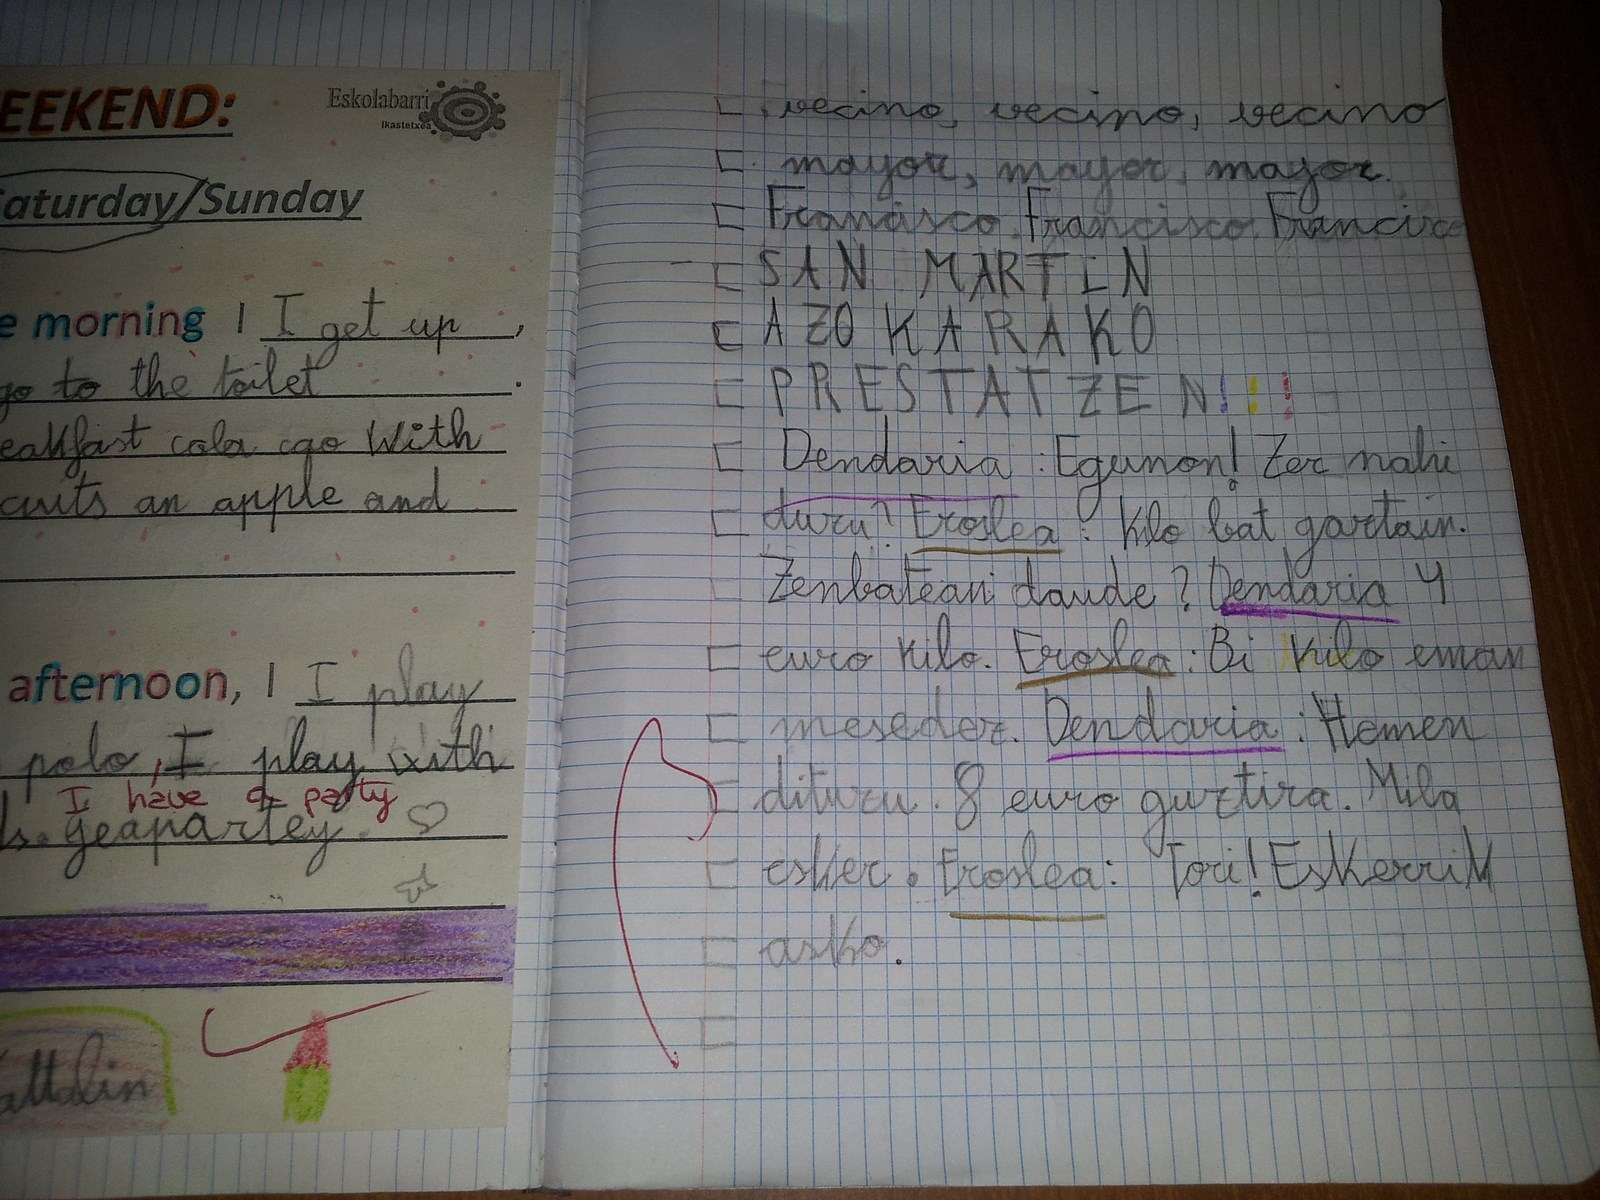 EEKEND:
Eskolabarri
Ikastetxea
Saturday/Sunday
e morning I I get up,
go to the toilet.
eakfast cola cao With
cuits an apple and
afternoon, I I play
polo, I play with
I have a party
ls. geapartey.
attalin
vecino, vecino, vecino
mayor, mayor, mayor.
Francisco, Francisco, Francisco
SAN MARTIN
AZOKARAKO
PRESTATZEN!!!
Dendaria: Egunon! Zer nahi
duzu? Eroslea: Kilo bat gaztain.
Zenbatean daude? Dendaria 4
euro kilo. Eroslea: Bi kilo eman
mesedez. Dendaria: Hemen
dituzu. 8 euro guztira. Mila
esker. Eroslea: Tori! Eskerrik
asko.